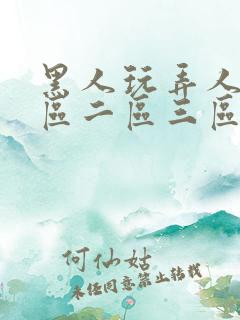 黑人玩弄人
區二區三區
何仙姑
未经同意禁止转载